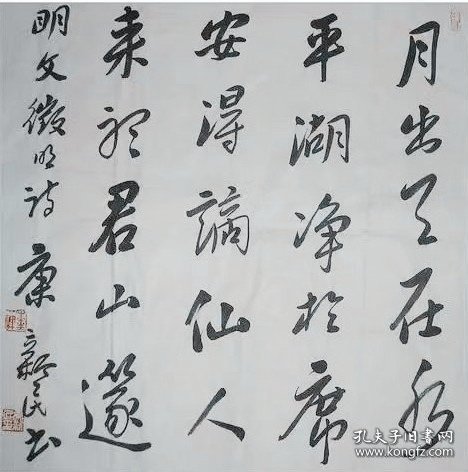 月出天在水
平湖净於席
安得謫仙人
来听君山篴
明文徵明诗 康 民书
孔夫子旧书网
www.kongfz.com